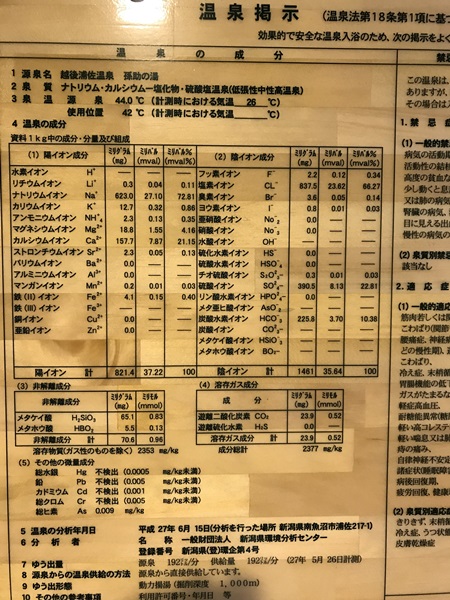 温泉掲示 (温泉法第18条第1項に基づ
効果的で安全な温泉入浴のため、次の掲示をよく
温泉の成分
禁
1 源泉名 越後浦佐温泉 孫助の湯
2 泉質 ナトリウム・カルシウム―塩化物・硫酸塩温泉(低張性中性高温泉)
3 泉温 源泉 44.0 ℃ (計測時における気温 26 ℃)
使用位置 42 ℃ (計測時における気温 ℃)
4 温泉の成分
資料1kg中の成分・分量及び組成
(1) 陽イオン成分 ミリグラム(mg) ミリバル(mval) ミリバル%(mval%)
水素イオン H⁺ — —
リチウムイオン Li⁺ 0.3 0.04 0.11
ナトリウムイオン Na⁺ 623.0 27.10 72.81
カリウムイオン K⁺ 12.7 0.32 0.86
アンモニウムイオン NH⁺₄ 2.3 0.13 0.35
マグネシウムイオン Mg²⁺ 18.8 1.55 4.16
カルシウムイオン Ca²⁺ 157.7 7.87 21.15
ストロンチウムイオン Sr²⁺ 2.3 0.05 0.13
バリウムイオン Ba²⁺ 0.0 — —
アルミニウムイオン Al³⁺ 0.0 — —
マンガンイオン Mn²⁺ 0.2 0.01 0.03
鉄(II)イオン Fe²⁺ 4.1 0.15 0.40
鉄(III)イオン Fe³⁺ — —
銅イオン Cu²⁺ 0.0 — —
亜鉛イオン Zn²⁺ 0.0 — —
陽イオン 計 821.4 37.22 100
(2) 陰イオン成分 ミリグラム(mg) ミリバル(mval) ミリバル%(mval%)
フッ素イオン F⁻ 2.2 0.12 0.34
塩素イオン CL⁻ 837.5 23.62 66.27
臭素イオン Br⁻ 3.6 0.05 0.14
ヨウ素イオン I⁻ 0.8 0.01 0.03
亜硝酸イオン No⁻₂ 0.0 — —
硝酸イオン No⁻₃ 0.0 — —
水酸イオン OH⁻ — —
硫化水素イオン HS⁻ 0.0 — —
硫酸水素イオン HSO⁻₄ — —
チオ硫酸イオン S₂O²⁻₃ 0.3 0.01 0.03
硫酸イオン SO²⁻₄ 390.5 8.13 22.81
リン酸水素イオン HPO²⁻₄ 0.0 — —
メタ亜ヒ酸イオン AsO⁻₂ — —
炭酸水素イオン HCO⁻₃ 225.8 3.70 10.38
炭酸イオン CO²⁻₃ 0.0 — —
メタケイ酸水素イオン HSiO⁻₃ — —
メタホウ酸イオン BO₂⁻ — —
陰イオン 計 1461 35.64 100
(3) 非解離成分 ミリグラム(mg) ミリモル(mmol)
メタケイ酸 H₂SiO₃ 65.1 0.83
メタホウ酸 HBO₂ 5.5 0.13
非解離成分 計 70.6 0.96
溶存物質(ガス性のものを除く) 2353 mg/kg
(4) 溶存ガス成分
成分 ミリグラム(mg) ミリモル(mmol)
遊離二酸化炭素 CO₂ 23.9 0.52
遊離硫化水素 H₂S 0.0 —
溶存ガス成分 計 23.9 0.52
成分総計 2377 mg/kg
(5) その他の微量成分
総水銀 Hg 不検出 (0.0005 mg/kg未満)
鉛 Pb 不検出 (0.005 mg/kg未満)
カドミウム Cd 不検出 (0.001 mg/kg未満)
総クロム Cr 不検出 (0.005 mg/kg未満)
総ヒ素 As 0.009 mg/kg)
5 温泉の分析年月日 平成 27年 6月 15日(分析を行った場所 新潟県南魚沼市浦佐217-1)
6 分析者 名称 一般財団法人 新潟県環境分析センター
登録番号 新潟県(登)環企第4号
7 ゆう出量 源泉 192ℓ/分 供給量 192ℓ/分 (27年 5月26日計測)
8 源泉からの温泉供給の方法 源泉から直接供給しています。
9 ゆう出形態 動力揚湯(掘削深度 1,000m)
10 その他の参考事項 利用許可番号・年月日 等
この温泉は、
ありますが、
その場合は入
1. 禁忌症
(1) 一般的禁
病気の活動期
活動性の結核
高度の貧血な
少し動くと息
又は肺の病気
腎臓の病気、
目に見える出
慢性の病気の
(2) 泉質別禁忌
該当なし
2. 適応症
(1) 一般的適応
筋肉若しくは関
こわばり(関節
腰痛症、神経痛
どの慢性期)、運
こわばり、
冷え症、末梢循
胃腸機能の低下
ガスがたまるな
軽症高血圧、
耐糖能異常(糖
軽い高コレステ
軽い喘息又は肺
痔の痛み、
自律神経不安定
諸症状(睡眠障害
病後回復期、
疲労回復、健康
(2) 泉質別適応症
きりきず、末梢循
冷え症、うつ状態
皮膚乾燥症